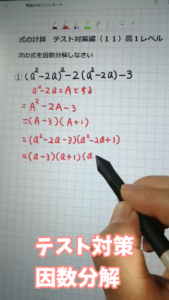 式の計算 テスト対策編(11)高1レベル
次の式を因数分解しなさい
① (a²-2a)²-2(a²-2a)-3
a²-2a=Aとする
=A²-2A-3
=(A-3)(A+1)
=(a²-2a-3)(a²-2a+1)
=(a-3)(a+1)(a
テスト対策
因数分解